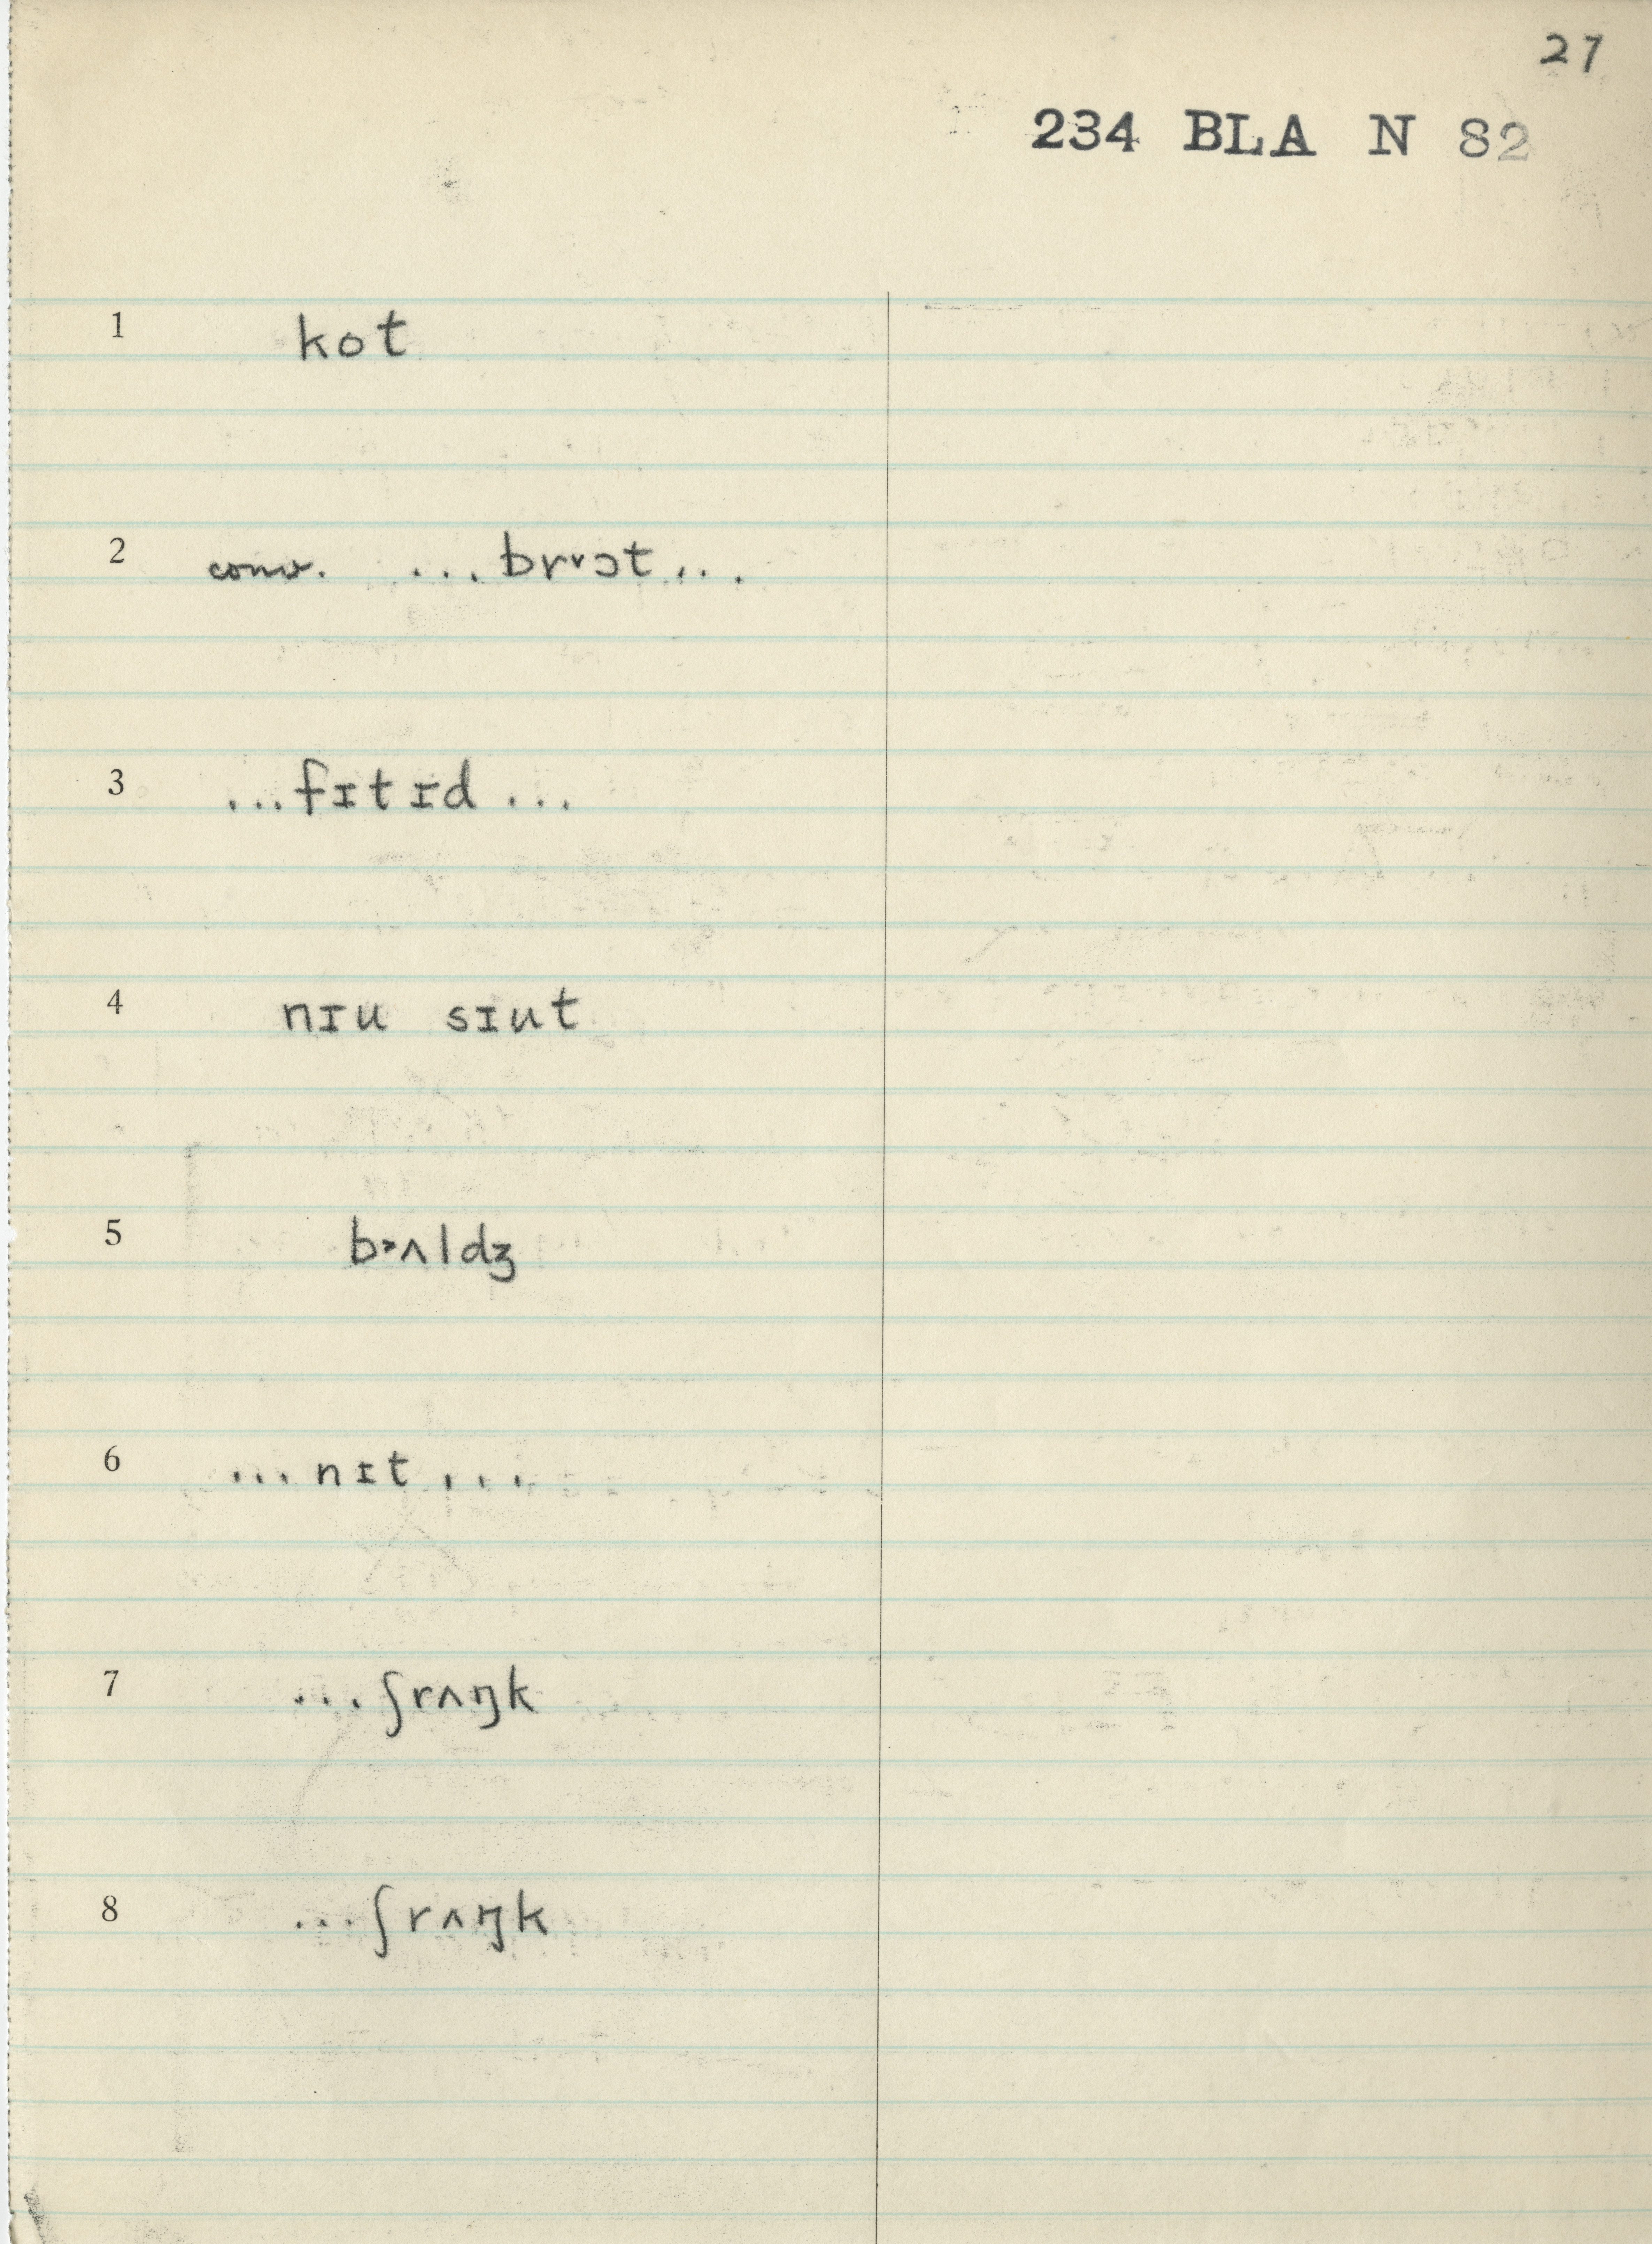 27
234 BLA N 82
1 kot
2 conv. ...brᵛɔt...
3 ...fɪtɪd...
4 nɪu sɪut
5 b˃ʌldʒ
6 ...nɪt...
7 ...ʃrʌŋk
8 ...ʃrʌŋk